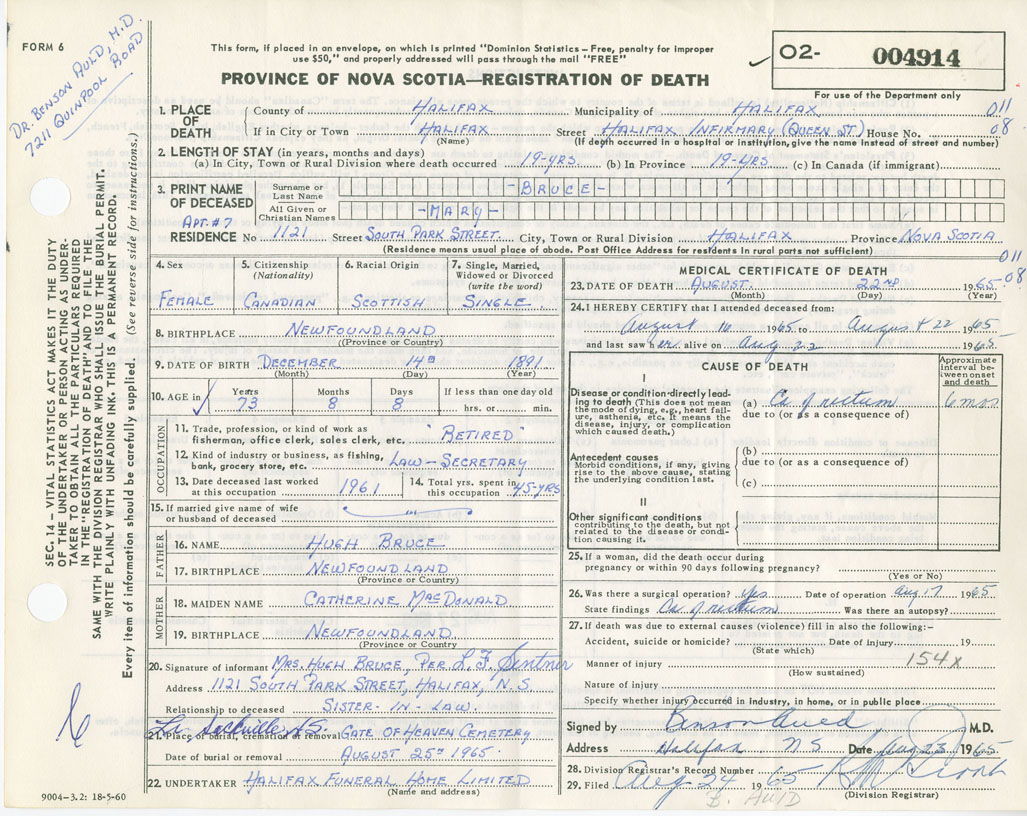 FORM 6
DR. BENSON AULD, M.D.
7211 QUINPOOL ROAD
This form, if placed in an envelope, on which is printed "Dominion Statistics – Free, penalty for improper
use $50," and properly addressed will pass through the mail "FREE"
PROVINCE OF NOVA SCOTIA—REGISTRATION OF DEATH
02- 004914
For use of the Department only
1. PLACE OF DEATH
County of HALIFAX Municipality of HALIFAX 011
If in City or Town HALIFAX Street HALIFAX INFIRMARY (QUEEN ST.) House No. 08
(Name) (If death occurred in a hospital or institution, give the name instead of street and number)
2. LENGTH OF STAY (in years, months and days)
(a) In City, Town or Rural Division where death occurred 19-YRS (b) In Province 19-YRS (c) In Canada (if immigrant)
3. PRINT NAME OF DECEASED
Surname or Last Name -BRUCE-
All Given or Christian Names -MARY-
APT. #7
RESIDENCE No 1121 Street SOUTH PARK STREET. City, Town or Rural Division HALIFAX Province NOVA SCOTIA
(Residence means usual place of abode. Post Office Address for residents in rural parts not sufficient)
011
08
4. Sex FEMALE
5. Citizenship (Nationality) CANADIAN
6. Racial Origin SCOTTISH
7. Single, Married, Widowed or Divorced (write the word) SINGLE
8. BIRTHPLACE NEWFOUNDLAND
(Province or Country)
9. DATE OF BIRTH DECEMBER 14th 1891
(Month) (Day) (Year)
10. AGE in Years 73 Months 8 Days 8 If less than one day old
hrs. or min.
OCCUPATION
11. Trade, profession, or kind of work as
fisherman, office clerk, sales clerk, etc. "RETIRED"
12. Kind of industry or business, as fishing,
bank, grocery store, etc. LAW - SECRETARY
13. Date deceased last worked at this occupation 1961
14. Total yrs. spent in this occupation 45-YRS
15. If married give name of wife
or husband of deceased
FATHER
16. NAME HUGH BRUCE
17. BIRTHPLACE NEWFOUNDLAND
(Province or Country)
MOTHER
18. MAIDEN NAME CATHERINE MACDONALD
19. BIRTHPLACE NEWFOUNDLAND
(Province or Country)
20. Signature of informant MRS. HUGH BRUCE, PER L. F. Sentner
Address 1121 SOUTH PARK STREET, HALIFAX, N.S.
Relationship to deceased SISTER-IN-LAW.
Sackville N.S.
21. Place of burial, cremation or removal GATE OF HEAVEN CEMETERY
Date of burial or removal AUGUST 25th 1965.
22. UNDERTAKER HALIFAX FUNERAL HOME LIMITED
(Name and address)
9004-3.2: 18-5-60
MEDICAL CERTIFICATE OF DEATH
23. DATE OF DEATH AUGUST 22ND 1965
(Month) (Day) (Year)
24. I HEREBY CERTIFY that I attended deceased from:
August 16 1965 to August 22 1965
and last saw her alive on Aug 22 1965
CAUSE OF DEATH
Approximate interval between onset and death
I
Disease or condition directly leading to death (This does not mean the mode of dying, e.g., heart failure, asthenia, etc. It means the disease, injury, or complication which caused death.)
(a) Ca of rectum 6 mos
due to (or as a consequence of)
Antecedent causes
Morbid conditions, if any, giving rise to the above cause, stating the underlying condition last.
(b)
due to (or as a consequence of)
(c)
II
Other significant conditions
contributing to the death, but not related to the disease or condition causing it.
25. If a woman, did the death occur during
pregnancy or within 90 days following pregnancy?
(Yes or No)
26. Was there a surgical operation? Yes Date of operation Aug 17 1965
State findings Ca of rectum Was there an autopsy?
27. If death was due to external causes (violence) fill in also the following:–
Accident, suicide or homicide? Date of injury 19
(State which)
154x
Manner of injury
(How sustained)
Nature of injury
Specify whether injury occurred in industry, in home, or in public place
Signed by Benson Auld M.D.
Address Halifax N S Date Aug 23 1965
28. Division Registrar's Record Number
29. Filed Aug 24 1965
(Division Registrar)
B. AULD
SEC. 14 – VITAL STATISTICS ACT MAKES IT THE DUTY
OF THE UNDERTAKER OR PERSON ACTING AS UNDER-
TAKER TO OBTAIN ALL THE PARTICULARS REQUIRED
IN THE "REGISTRATION OF DEATH" AND TO FILE THE
SAME WITH THE DIVISION REGISTRAR WHO SHALL ISSUE THE BURIAL PERMIT.
WRITE PLAINLY WITH UNFADING INK. THIS IS A PERMANENT RECORD.
Every item of information should be carefully supplied. (See reverse side for instructions.)